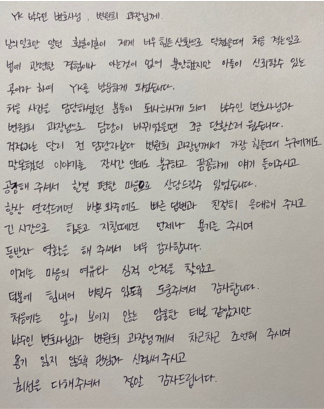 YK 박수인 변호사님, 변원희 과장님께.
남의 일로만 알던 이혼이 제게 너무 힘든 산황으로 닥쳤을때 처음 겪는일로
법에 관련한 경험이나 아는것이 없어 불안했지만 아들이 신뢰할수 있는
곳이라 하여 YK를 방문하게 되었습니다.
처음 사건을 담당하셨던 분들이 퇴사하시게 되어 박수인 변호사님과
변원희 과장님으로 담당이 바뀌었을땐 조금 당황스러웠습니다.
걱정과는 달리 전 담당자보다 변원희 과장님께서 가장 힘들때 누구에게도
말못했던 이야기를 장시간 인데도 불구하고 꼼꼼하게 얘기 들어주시고
공감해 주셔서 한결 편한 마음으로 상담드릴수 있었습니다.
항상 연락드리면 바쁜 와중에도 빠른 답변과 진정히 응대해 주시고
긴 시간으로 힘들고 지칠때면 언제나 용기를 주시며
동반자 역할을 해 주셔서 너무 감사합니다.
이제는 마음의 여유와 심적 안정을 찾았고
덕분에 힘내어 버틸수 있도록 도움주셔서 감사합니다.
처음에는 앞이 보이지 않는 암울한 터널 같았지만
박수인 변호사님과 변원희 과장님께서 차근차근 조언해 주시며
용기 잃지 않도록 관심과 신뢰를 주시고
최선을 다해주셔서 정말 감사드립니다.